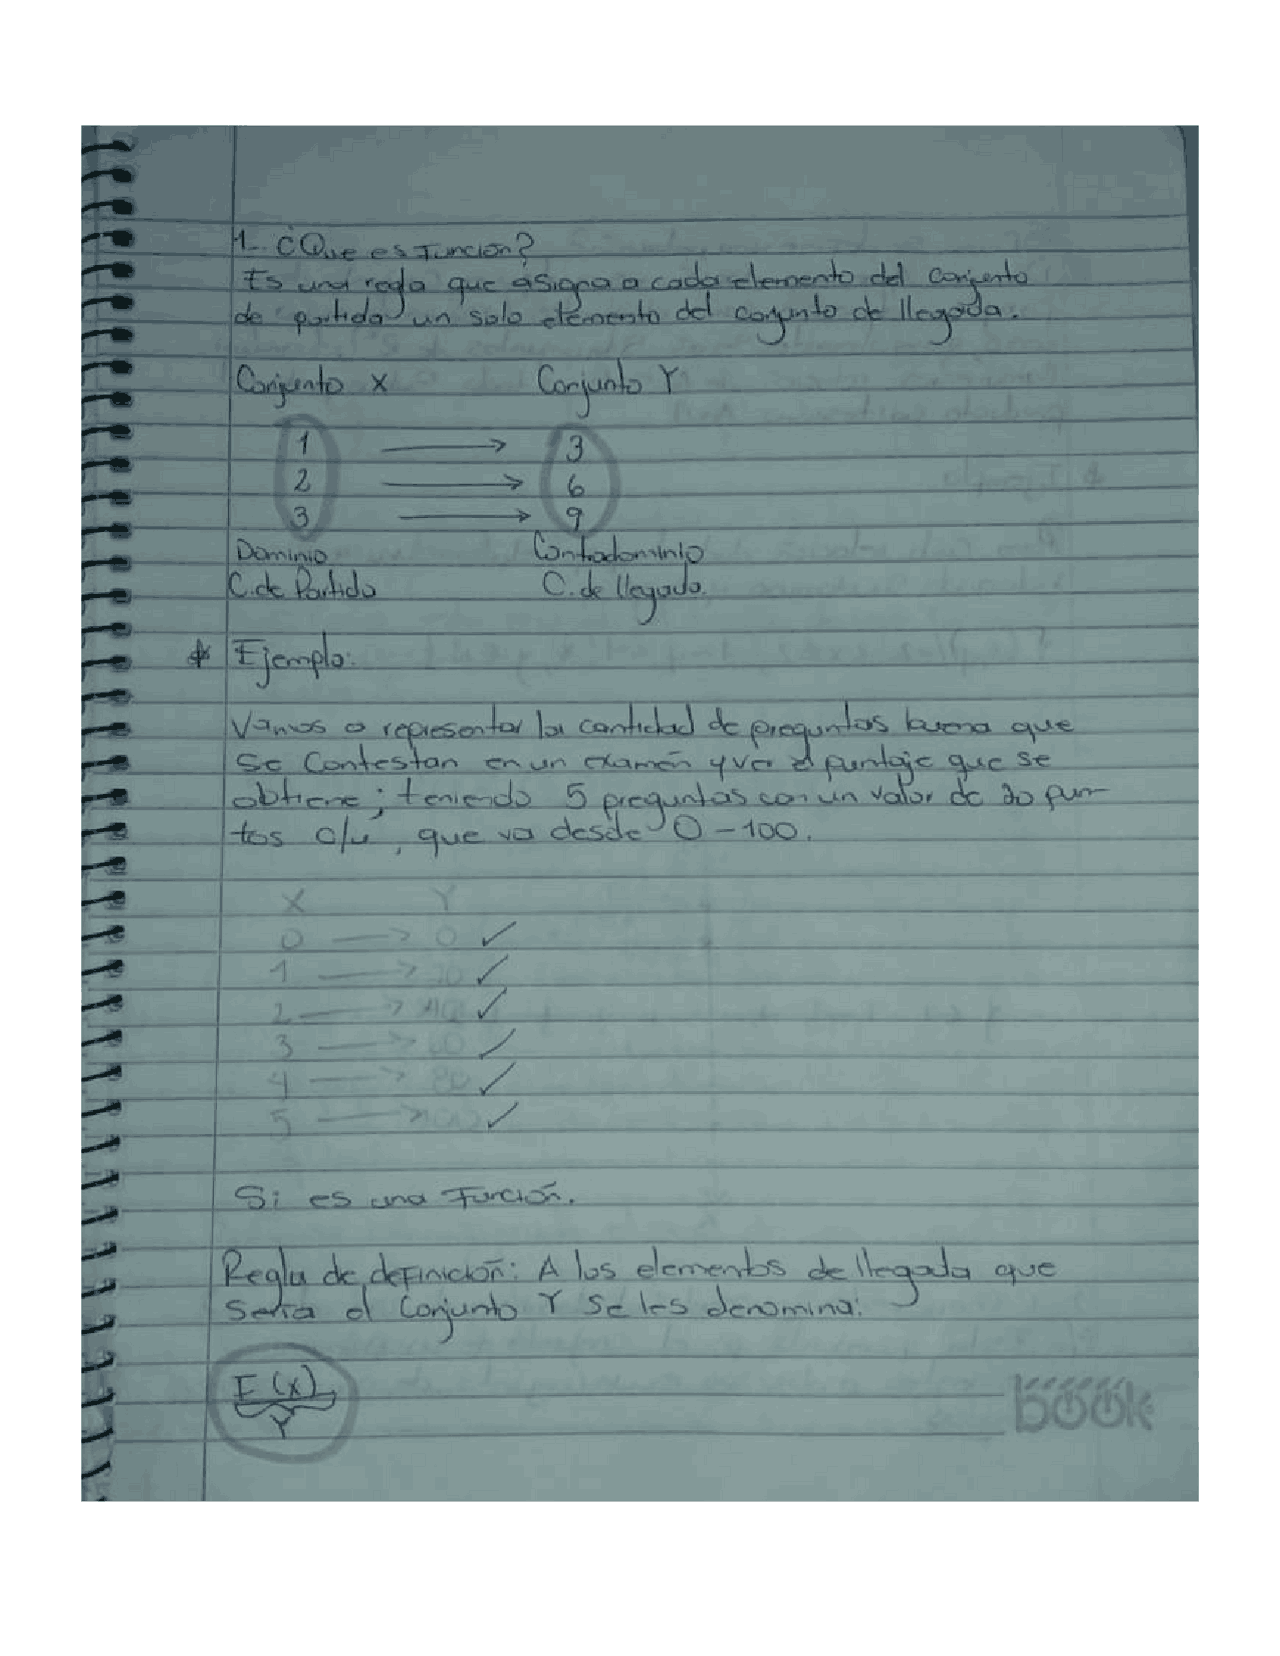 1- ¿Que es Función?
Es una regla que ásigna a cada elemento del conjunto
de partida un solo elemento del conjunto de llegada.
Conjunto X Conjunto Y
1 → 3
2 → 6
3 → 9
Dominio Contradominio
C. de Partida C. de llegada.
* Ejemplo:
Vamos a representar la cantidad de preguntas buena que
Se Contestan en un examen y ver el puntaje que se
obtiene; teniendo 5 preguntas con un valor de 20 pun-
tos c/u, que va desde 0 - 100.
X Y
0 → 0 ✓
1 → 20 ✓
2 → 40 ✓
3 → 60 ✓
4 → 80 ✓
5 → 100 ✓
Si es una Función.
Regla de definición: A los elementos de llegada que
Seria el Conjunto Y Se les denomina:
F(x)
Y
book